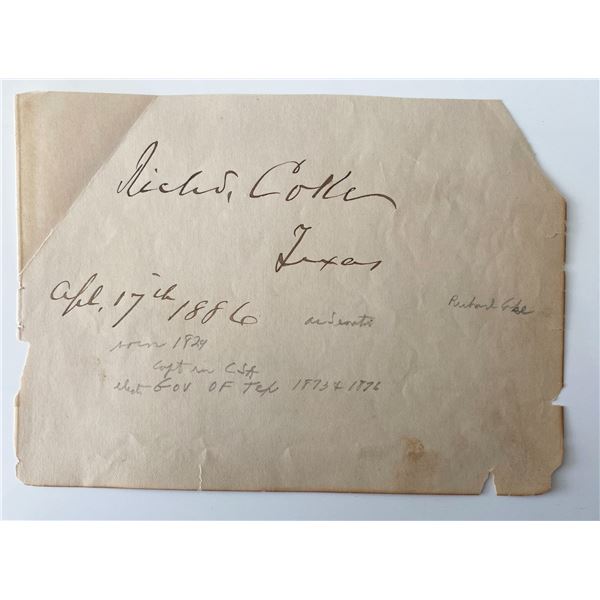 Richd. Coke
Texas
Apl, 17th 1886
as Senator
Richard Coke
born 1829
Capt in CSA
elect. Gov OF Tex 1873 & 1876